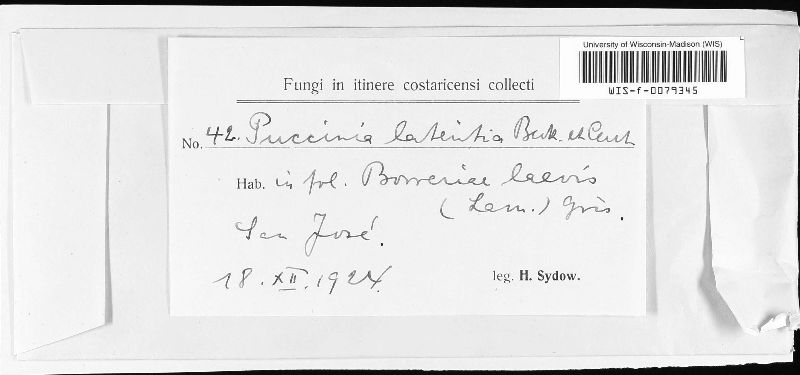 University of Wisconsin-Madison (WIS)
WIS-f-0079345
Fungi in itinere costaricensi collecti
No. 42. Puccinia lateritia Berk. et Curt.
Hab. in fol. Borreriae laevis
(Lam.) Gris.
San José.
18. XII. 1924.
leg. H. Sydow.